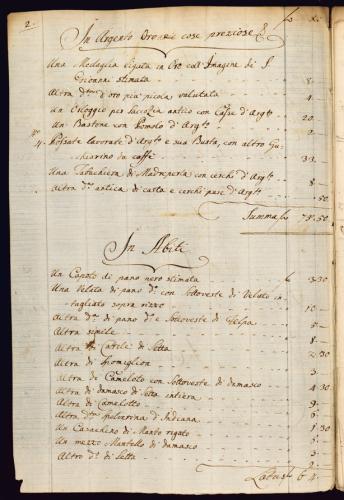 2.
In Argento Oro, e cose preziose
Una Medaglia legata in Oro coll'Imagine di S.
Gio:anni stimata 8 -
Altra d.ª d'oro più picola, valutata 4 -
Un Orloggio per saccozia antico con Casse d'Arg.to 20 -
Un Bastone con Pomolo d'Arg.to 2 -
N.° 4. Possate lavorate d'Arg.to e sua Busta, con altro Cu-
chiarino da caffè 33 -
Una Tabachiera di Madreperla con cerchi d'Arg.to 8 -
Altra d.ª antica di carta e cerchi pure d'Arg.to - 50
Summa 78.50
In Abiti
Un Capoto di pano nero stimato 3.30
Una Velata di pan d.° con Sottoveste di Veluto in-
tagliato sopra rizzo 10 -
Altra d.ª di pano d.° e Sottoveste di Felpa 5 -
Altra simile 8 -
Altra di Seta 2.30
Altra di 3 -
Altra di Camelotto con Sottoveste di damasco 4.30
Altra di damasco di Setta intiera 9 -
Altra di Camelotto 5 -
Altra d.ª polverina d'Indiana 1.30
Un Casachino di Manto rigato 5 -
Un mezzo Mantello di damasco 3 -
Altro d.° di Setta 2 -
Latus 64 -